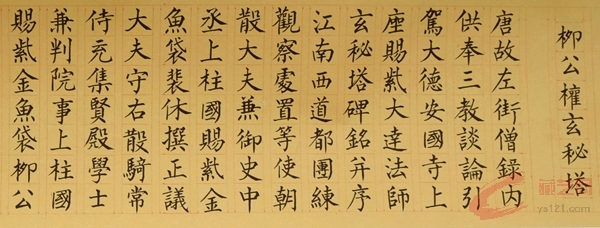 柳公權玄秘塔
唐故左街僧錄内
供奉三教談論引
駕大德安國寺上
座賜紫大達法師
玄秘塔碑銘并序
江南西道都團練
觀察處置等使朝
散大夫兼御史中
丞上柱國賜紫金
魚袋裴休撰正議
大夫守右散騎常
侍充集賢殿學士
兼判院事上柱國
賜紫金魚袋柳公
ys121.com